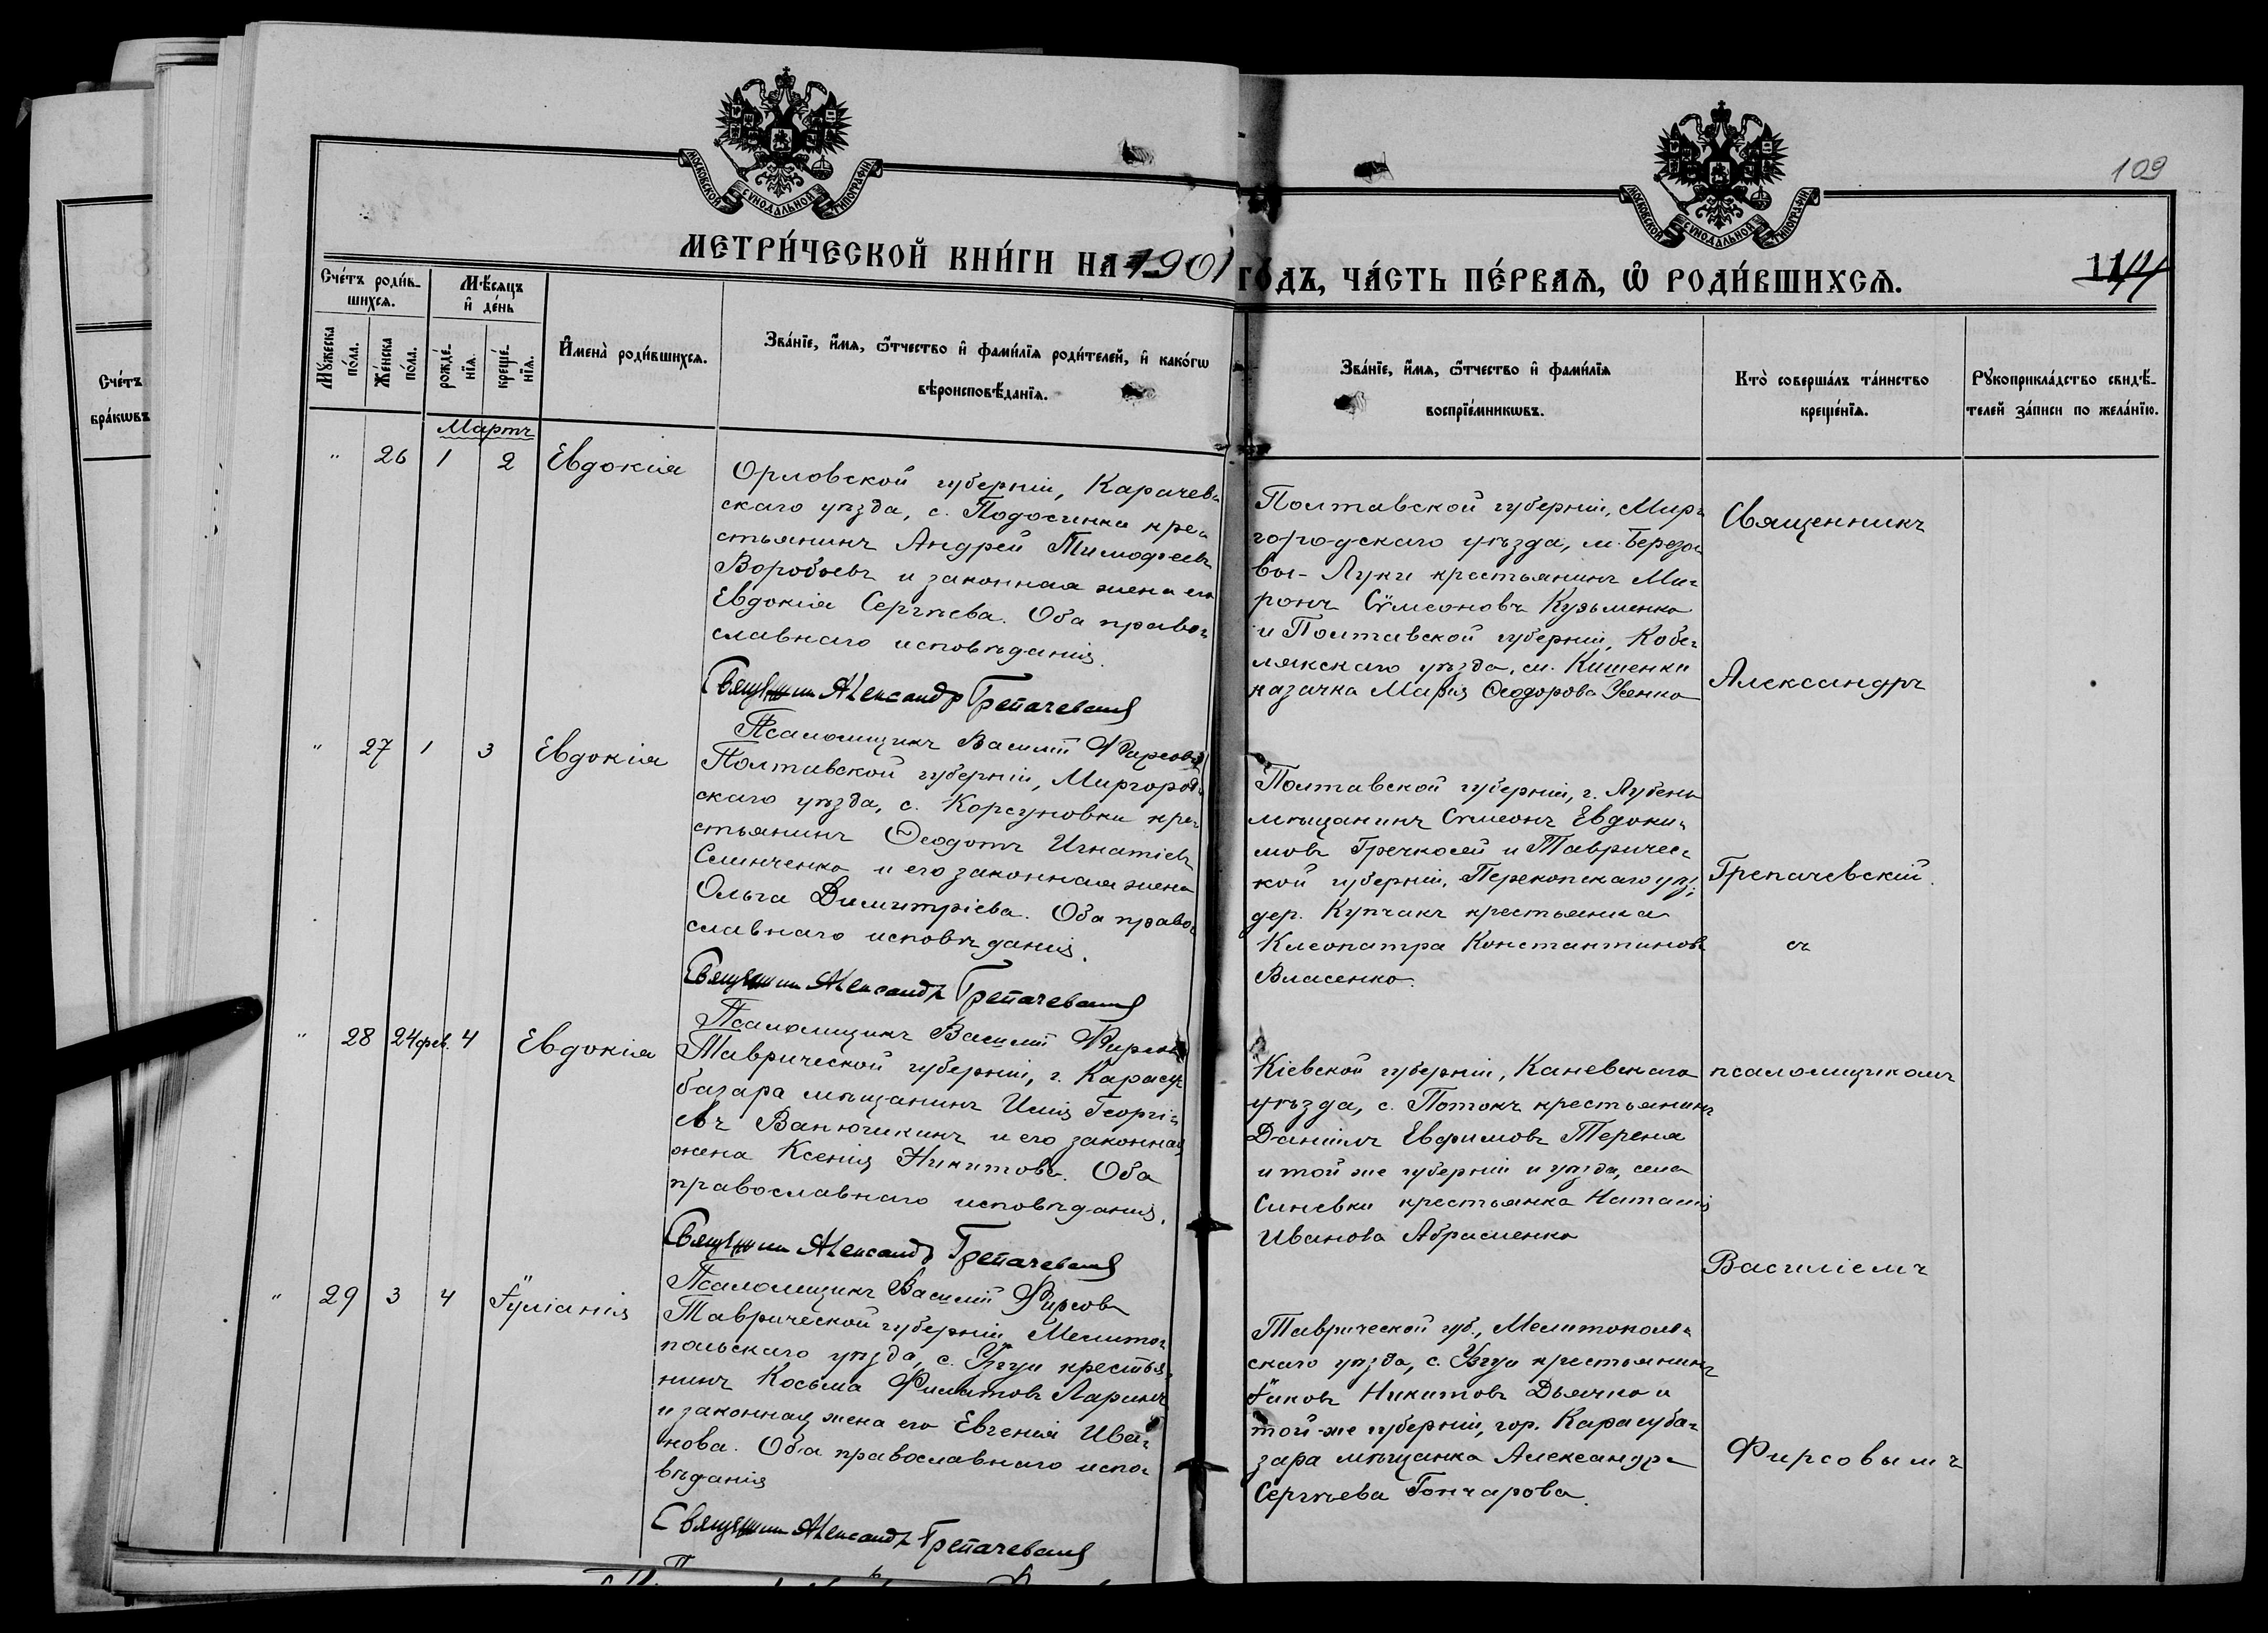 МОСКОВСКОЙ СѴНОДАЛЬНОЙ ТИПОГРАФІИ
МОСКОВСКОЙ СѴНОДАЛЬНОЙ ТИПОГРАФІИ
109
МЕТРИ́ЧЕСКОЙ КНИ́ГИ НА 1901 ГО́ДЪ, ЧА́СТЬ ПЕ́РВАѦ, Ѡ РОДИ́ВШИХСѦ.
Сче́тъ
бра́кѡвъ
Сче́тъ роди́в-
шихсѧ.
Мꙋ́жеска по́ла.
Же́нска по́ла.
Мѣ́сѧцъ
и҆ де́нь
рожде́-нїѧ.
креще́-нїѧ.
И҆мена̀ роди́вшихсѧ.
Зва́нїе, и҆́мѧ, ѻ҆́тчество и҆ фами́лїѧ роди́телей, и҆ како́гѡ
вѣроисповѣ́данїѧ.
Зва́нїе, и҆́мѧ, ѻ҆́тчество и҆ фами́лїѧ
воспрїе́мникѡвъ.
Кто̀ соверша́лъ та́инство
креще́нїѧ.
Рꙋкоприкла́дство свидѣ́-
телей за́писи по жела́нїю.
Мартъ
" 26 1 2 Евдокія
Орловской губерніи, Карачев-
скаго уѣзда, с. Подосинки кре-
стьянинъ Андрей Тимофеевъ
Воробьевъ и законная жена его
Евдокія Сергѣева. Оба право-
славнаго исповѣданія.
Священникъ Александр Грепачевскій
Псаломщикъ Василій Фирсовъ
Полтавской губерніи, Мир-
городскаго уѣзда, м. Березо-
вы-Луки крестьянинъ Ми-
ронъ Сѵмеоновъ Кузьменко
и Полтавской губерніи, Кобе-
лякскаго уѣзда, м. Кишенки
казачка Марія Ѳеодорова Усенко
Священникъ
Александръ
Грепачевскій
съ
псаломщикомъ
Василіемъ
Фирсовымъ
" 27 1 3 Евдокія
Полтавской губерніи, Миргород-
скаго уѣзда, с. Корсуновки кре-
стьянинъ Ѳеодотъ Игнатіевъ
Семинченко и его законная жена
Ольга Димитріева. Оба право-
славнаго исповѣданія.
Священникъ Александр Грепачевскій
Псаломщикъ Василій Фирсовъ
Полтавской губерніи, г. Лубенъ
мѣщанинъ Сѵмеонъ Евдоки-
мовъ Гречкосей и Тавричес-
кой губерніи, Перекопскаго уѣз.
дер. Купчакъ крестьянка
Клеопатра Константинова
Власенко.
" 28 24 фев. 4 Евдокія
Таврической губерніи, г. Карасу-
базара мѣщанинъ Илія Георгі-
евъ Ванючикинъ и его законная
жена Ксенія Никитова. Оба
православнаго исповѣданія.
Священникъ Александр Грепачевскій
Псаломщикъ Василій Фирсовъ
Кіевской губерніи, Каневскаго
уѣзда, с. Потокъ крестьянинъ
Даніилъ Евфимовъ Тереня
и той же губерніи и уѣзда, села
Синевки крестьянка Наталія
Иванова Абраменко
" 29 3 4 Іуліанія
Таврической губерніи, Мелито-
польскаго уѣзда, с. Узгуи крестья-
нинъ Косьма Филатовъ Ларинъ
и законная жена его Евгенія Ива-
нова. Оба православнаго испо-
вѣданія
Священникъ Александр Грепачевскій
Таврической губ., Мелитополь-
скаго уѣзда, с. Узгуи крестьянинъ
Іаковъ Никитовъ Дьячко и
той-же губерніи, гор. Карасуба-
зара мѣщанка Александра
Сергѣева Гончарова.